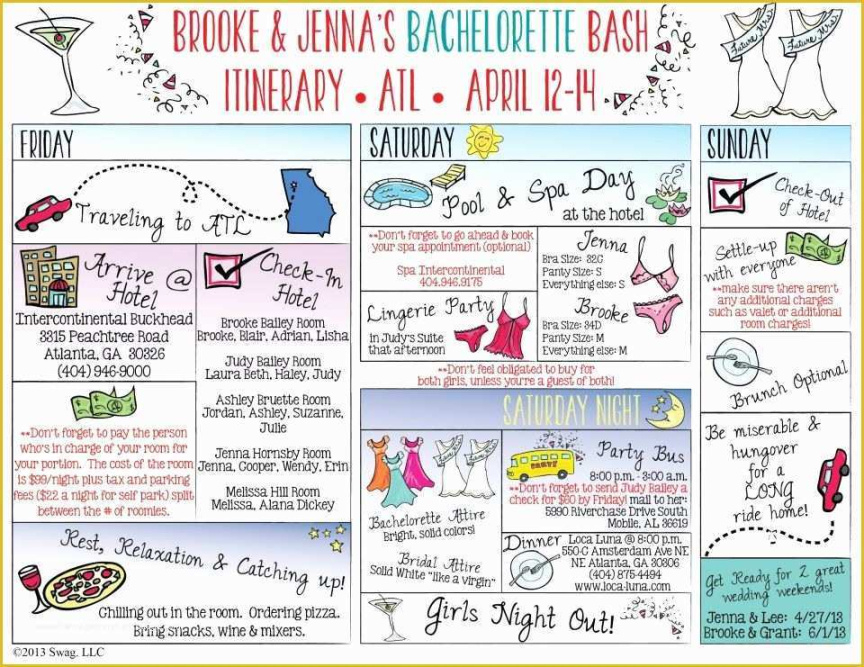 BROOKE & JENNA'S BACHELORETTE BASH
ITINERARY • ATL • APRIL 12-14
Future Mrs.
Future Mrs.
FRIDAY
Traveling to ATL
Arrive @
Hotel
Intercontinental Buckhead
3315 Peachtree Road
Atlanta, GA 30326
(404) 946-9000
Check-In
Hotel
Brooke Bailey Room
Brooke, Blair, Adrian, Lisha
Judy Bailey Room
Laura Beth, Haley, Judy
Ashley Bruette Room
Jordan, Ashley, Suzanne,
Julie
Jenna Hornsby Room
Jenna, Cooper, Wendy, Erin
Melissa Hill Room
Melissa, Alana Dickey
**Don't forget to pay the person
who's in charge of your room for
your portion. The cost of the room
is $99/night plus tax and parking
fees ($22 a night for self park) split
between the # of roomies.
Rest, Relaxation & Catching up!
Chilling out in the room. Ordering pizza.
Bring snacks, wine & mixers.
SATURDAY
Pool & Spa Day
at the hotel
**Don't forget to go ahead & book
your spa appointment (optional)
Spa Intercontinental
404.946.9175
Jenna
Bra Size: 32C
Panty Size: S
Everything else: S
Lingerie Party
in Judy's Suite
that afternoon
Brooke
Bra Size: 34D
Panty Size: M
Everything else: M
**Don't feel obligated to buy for
both girls, unless you're a guest of both!
SATURDAY NIGHT
Bachelorette Attire
Bright, solid colors!
Bridal Attire
Solid White "like a virgin"
PARTY
Party Bus
8:00 p.m. - 3:00 a.m.
**Don't forget to send Judy Bailey a
check for $60 by Friday! mail to her:
5990 Riverchase Drive South
Mobile, AL 36619
Dinner
Loca Luna @ 8:00 p.m.
550-C Amsterdam Ave NE
NE Atlanta, GA 30306
(404) 875-4494
www.loca-luna.com
Girls Night Out!
SUNDAY
Check-Out
of Hotel
Settle-up
with everyone
**make sure there aren't
any additional charges
such as valet or additional
room charges!
Brunch Optional
Be miserable &
hungover
for a
LONG
ride home!
Get Ready for 2 great
wedding weekends!
Jenna & Lee: 4/27/13
Brooke & Grant: 6/1/13
©2013 Swag, LLC